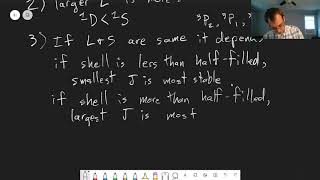 2) larger L is more
¹D < ¹S ³P₂, ³P₁,
3) If L & S are same it depends
if shell is less than half-filled,
smallest J is most stable
if shell is more than half-filled,
largest J is most